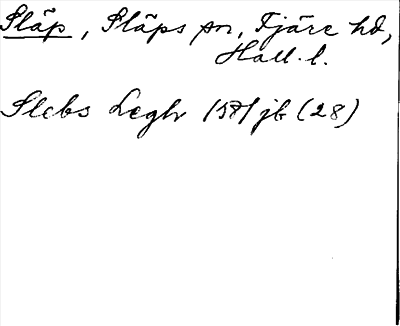 Släp, Släps sn, Fjäre hd,
Hall. l.
Slebs Leghr 1581 jb (28)